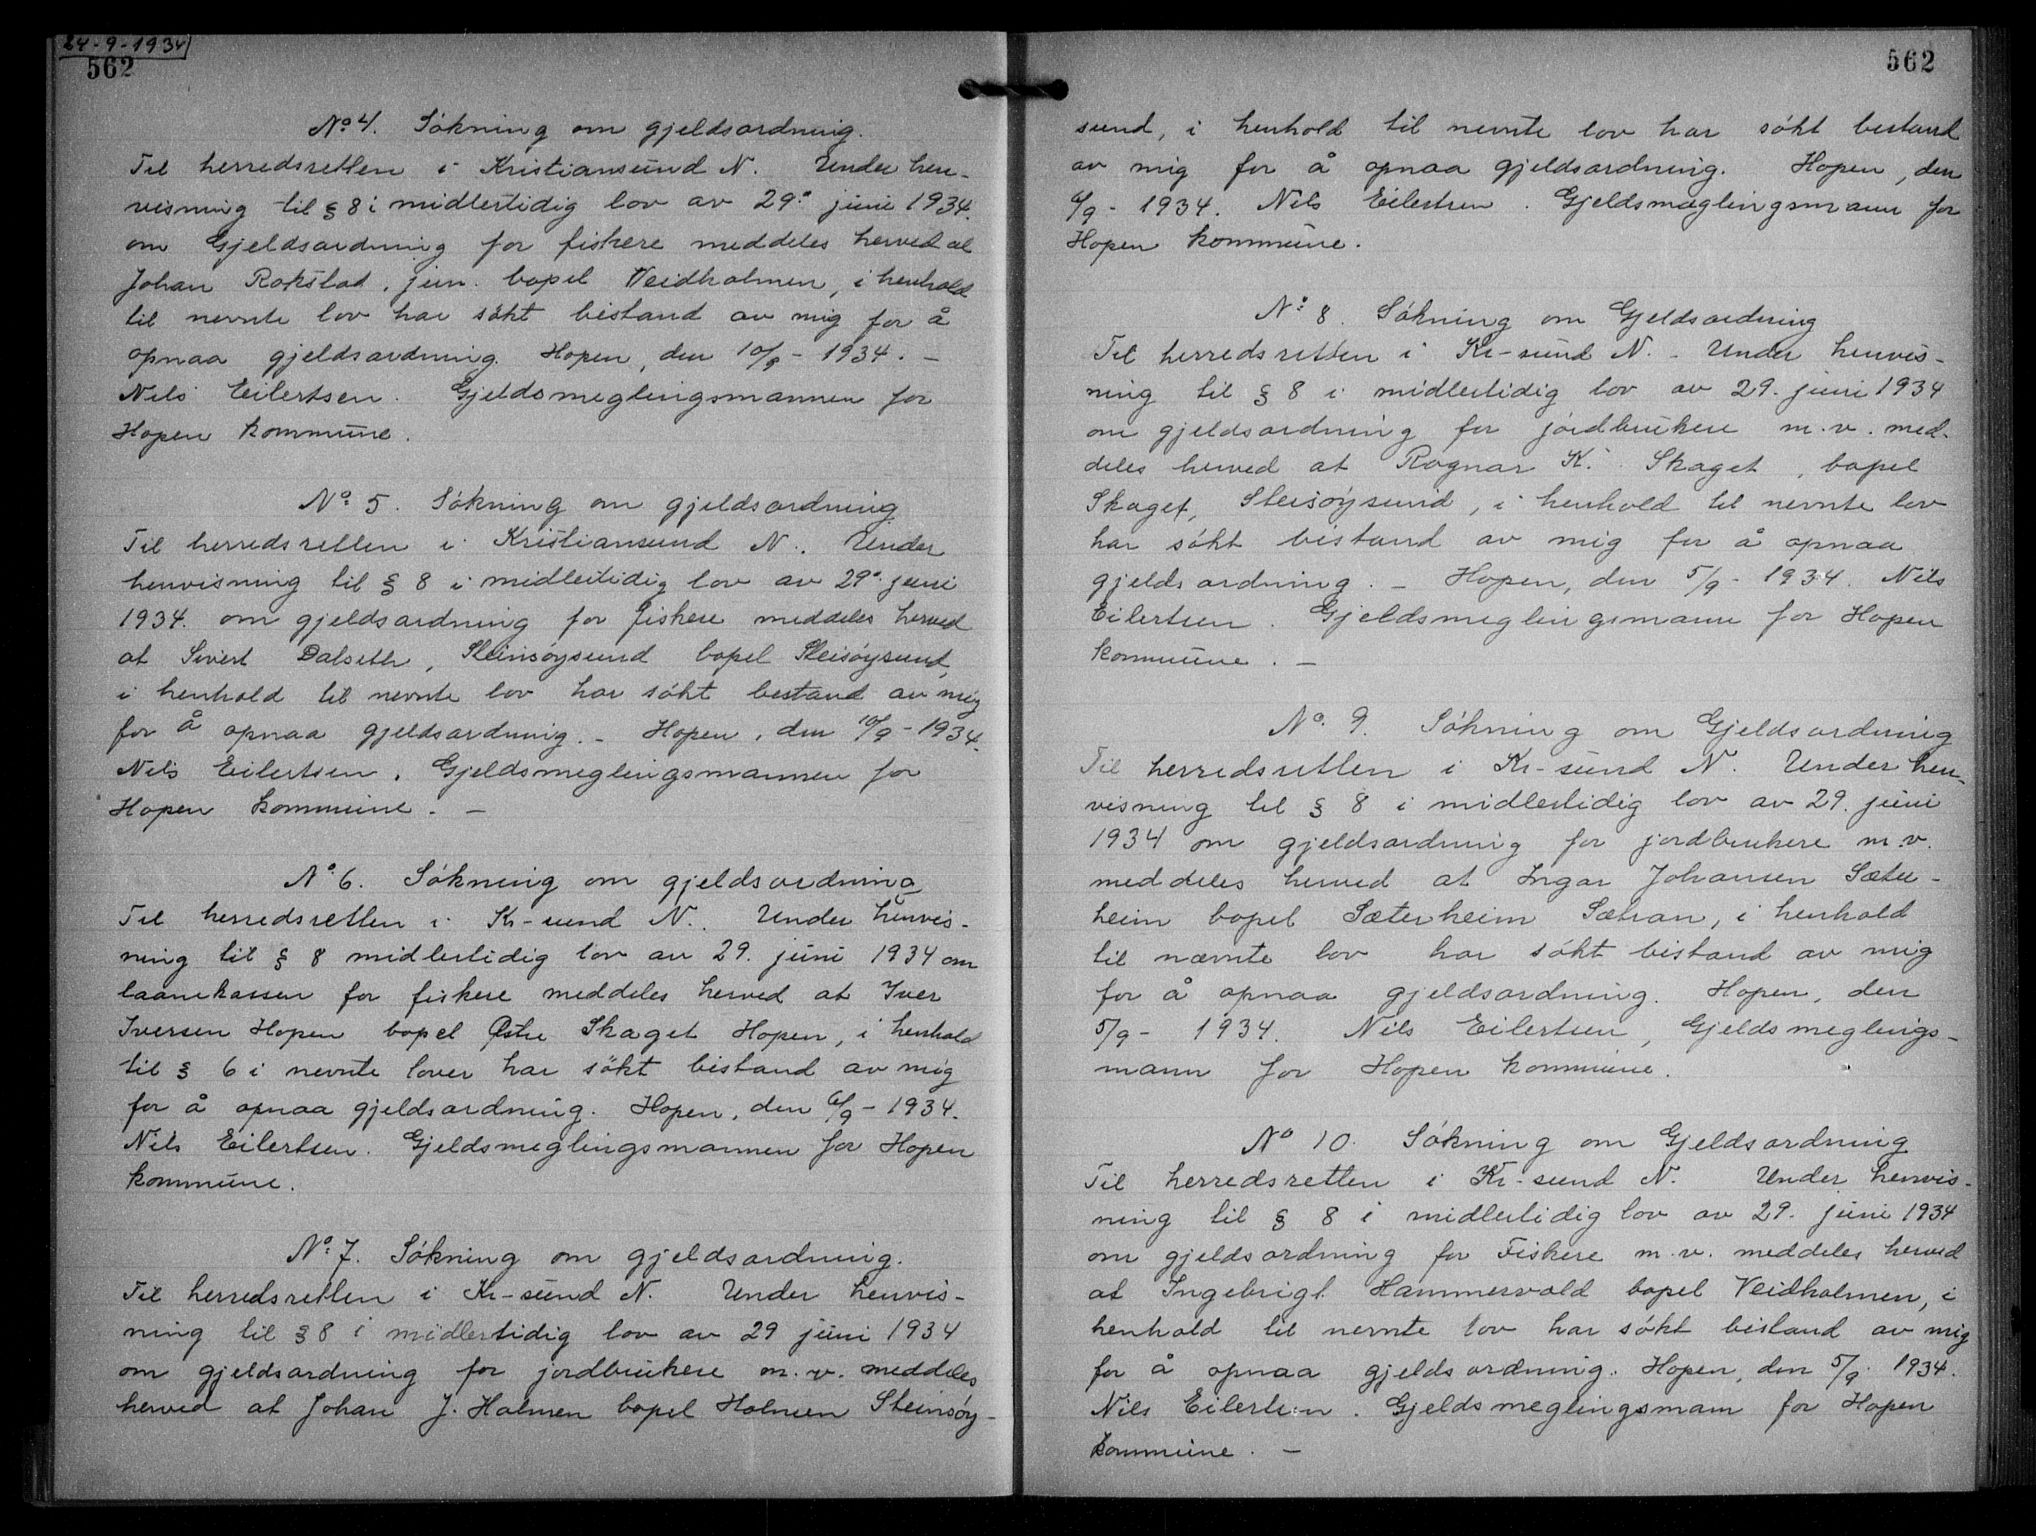 24-9-1934
562
No 4. Sökning om gjeldsordning.
Til herredsretten i Kristiansund N. Under hen-
visning til § 8 i midlertidig lov av 29. juni 1934.
om Gjeldsordning for fiskere meddeles herved at
Johan Rokstad, jun. bopel Veidholmen, i henhold
til nevnte lov har søkt bistand av mig for å
opnaa gjeldsordning. Hopen, den 10/9 - 1934. -
Nils Eilertsen. Gjeldsmeglingsmannen for
Hopen kommune.
No 5. Sökning om gjeldsordning
Til herredsretten i Kristiansund N. Under
henvisning til § 8 i midlertidig lov av 29. juni
1934. om gjeldsordning for fiskere meddeles herved
at Sivert Dalseth, Steinsøysund bopel Steisøysund,
i henhold til nevnte lov har søkt bestand av mig
for å opnaa gjeldsordning. - Hopen, den 10/9 - 1934.
Nils Eilertsen. Gjeldsmeglingsmannen for
Hopen kommune. -
No 6. Sökning om gjeldsordning
Til herredsretten i Kr-sund N. Under henvis-
ning til § 8 midlertidig lov av 29. juni 1934 om
laanekassen for fiskere meddeles herved at Iver
Iversen Hopen bopel Østre Skaget Hopen, i henhold
til § 6 i nevnte lover har søkt bistand av mig
for å opnaa gjeldsordning. Hopen, den 6/9 - 1934.
Nils Eilertsen. Gjeldsmeglingsmannen for Hopen
kommune.
No 7. Sökning om gjeldsordning.
Til herredsretten i Kr-sund N. Under henvis-
ning til § 8 i midlertidig lov av 29 juni 1934
om gjeldsordning for jordbrukere m. v. meddeles
herved at Johan J. Holmen bopel Holmen Steinsøy-
562
sund, i henhold til nevnte lov har søkt bestand
av mig for å opnaa gjeldsordning. Hopen, den
6/9 - 1934. Nils Eilertsen. Gjeldsmæglingsmann for
Hopen kommune.
No 8. Sökning om Gjeldsordning
Til herredsretten i Kr-sund N. - Under henvis-
ning til § 8 i midlertidig lov av 29. juni 1934
om gjeldsordning for jordbrukere m. v. med-
deles herved at Ragnar K. Skaget, bopel
Skaget, Steisøysund, i henhold til nevnte lov
har søkt bistand av mig for å opnaa
gjeldsordning. - Hopen, den 5/9 - 1934. Nils
Eilertsen. Gjeldsmeglingsmann for Hopen
kommune. -
No. 9. Sökning om Gjeldsordning
Til herredsretten i Kr-sund N. Under hen-
visning til § 8 i midlertidig lov av 29. juni
1934 om gjeldsordning for jordbrukere m. v.
meddeles herved at Ingar Johansen Sæter-
heim bopel Sæterheim Sætran, i henhold
til nævnte lov har søkt bistand av mig
for å opnaa gjeldsordning. Hopen, den
5/9 - 1934. Nils Eilertsen, Gjeldsmeglings-
mann for Hopen kommune.
No 10. Sökning om Gjeldsordning
Til herredsretten i Kr-sund N. Under henvis-
ning til § 8 i midlertidig lov av 29. juni 1934
om gjeldsordning for Fiskere m. v. meddeles herved
at Ingebrigt Hammervold bopel Veidholmen, i
henhold til nevnte lov har søkt bistand av mig
for å opnaa gjeldsordning. Hopen, den 5/9. 1934.
Nils Eilertsen. Gjeldsmeglingsmann for Hopen
kommune. -